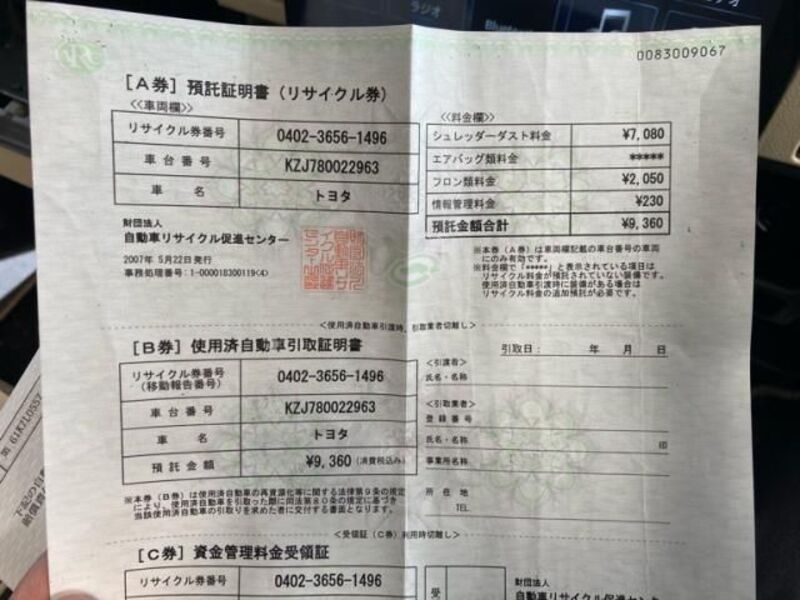 ラジオ
0083009067
[A券] 預託証明書 (リサイクル券)
<<車両欄>>
リサイクル券番号 0402-3656-1496
車台番号 KZJ780022963
車名 トヨタ
<<料金欄>>
シュレッダーダスト料金 ¥7,080
エアバッグ類料金 *****
フロン類料金 ¥2,050
情報管理料金 ¥230
預託金額合計 ¥9,360
財団法人
自動車リサイクル促進センター
2007年 5月22日発行
事務処理番号:1-000018300119(4)
※本券(A券)は車両欄記載の車台番号の車両
にのみ有効です。
※料金欄で「*****」と表示されている項目は
リサイクル料金が預託されていない装備です。
使用済自動車引渡時に装備がある場合は
リサイクル料金の追加預託が必要です。
<使用済自動車引渡時、引取業者切離し>
[B券] 使用済自動車引取証明書
引取日: 年 月 日
リサイクル券番号
(移動報告番号) 0402-3656-1496
車台番号 KZJ780022963
車名 トヨタ
預託金額 ¥9,360 (消費税込み)
<引渡者>
氏名・名称
<引取業者>
登録番号
氏名・名称 印
事業所名称
所在地
TEL
※本券(B券)は使用済自動車の再資源化等に関する法律第9条の規定
により、使用済自動車を引取った際に同法第80条の規定に基づき
当該使用済自動車の引取りを求めた者に交付する書面となります。
<受領証(C券)利用時切離し>
[C券] 資金管理料金受領証
リサイクル券番号 0402-3656-1496
受
財団法人
自動車リサイクル促進センター